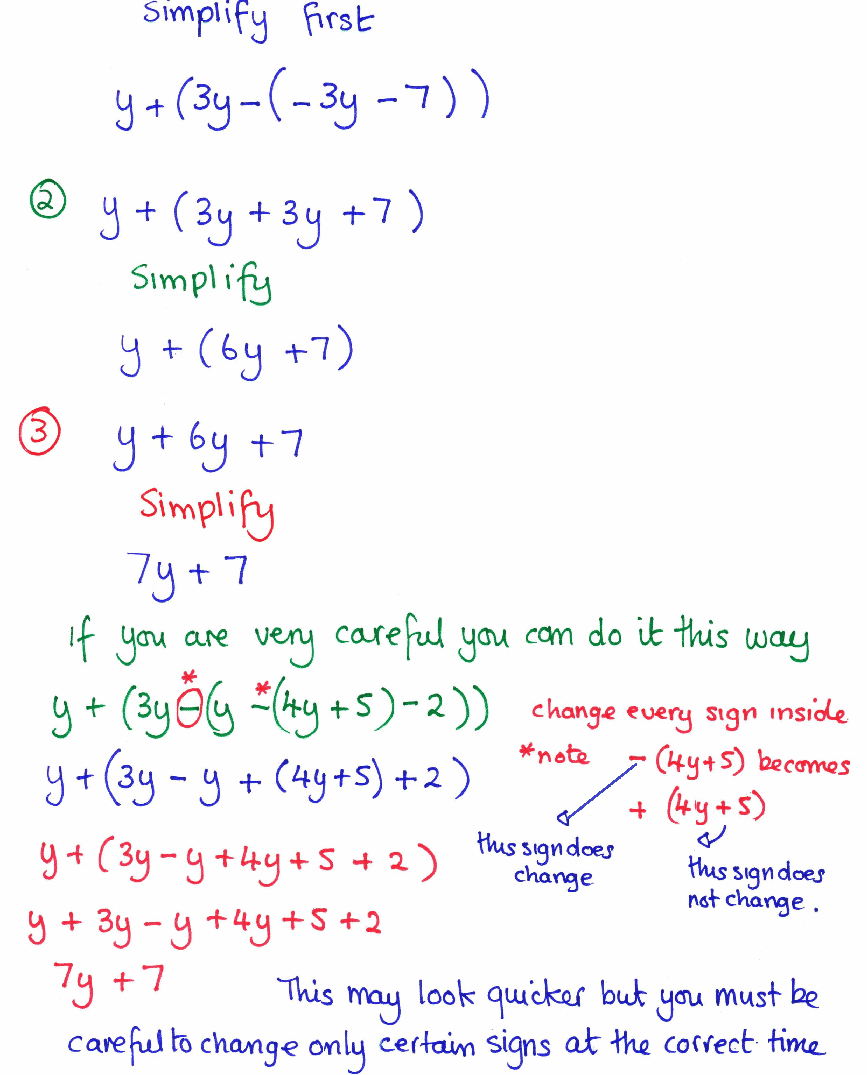 Simplify first
y + (3y - (-3y - 7))
② y + (3y + 3y + 7)
Simplify
y + (6y + 7)
③ y + 6y + 7
Simplify
7y + 7
If you are very careful you can do it this way
y + (3y - (y - (4y + 5) - 2))
* *
change every sign inside
*note - (4y+5) becomes
+ (4y + 5)
y + (3y - y + (4y+5) + 2)
this sign does
change
this sign does
not change.
y + (3y - y + 4y + 5 + 2)
y + 3y - y + 4y + 5 + 2
7y + 7
This may look quicker but you must be
careful to change only certain signs at the correct time